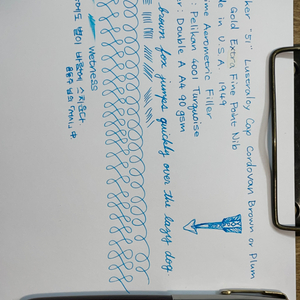 ker '51' Lustraloy Cap Cordovan Brown or Plum
Gold Extra Fine Point Nib
de in U.S.A. 1949
ime Aerometric Filler
: Pelikan 4001 Turquoise
r : Double A A4 90gsm
brown fox jumps quickly over the lazy dog
wetness
에도 별이 바람에 스치운다
윤동주 님의 「서시」 中